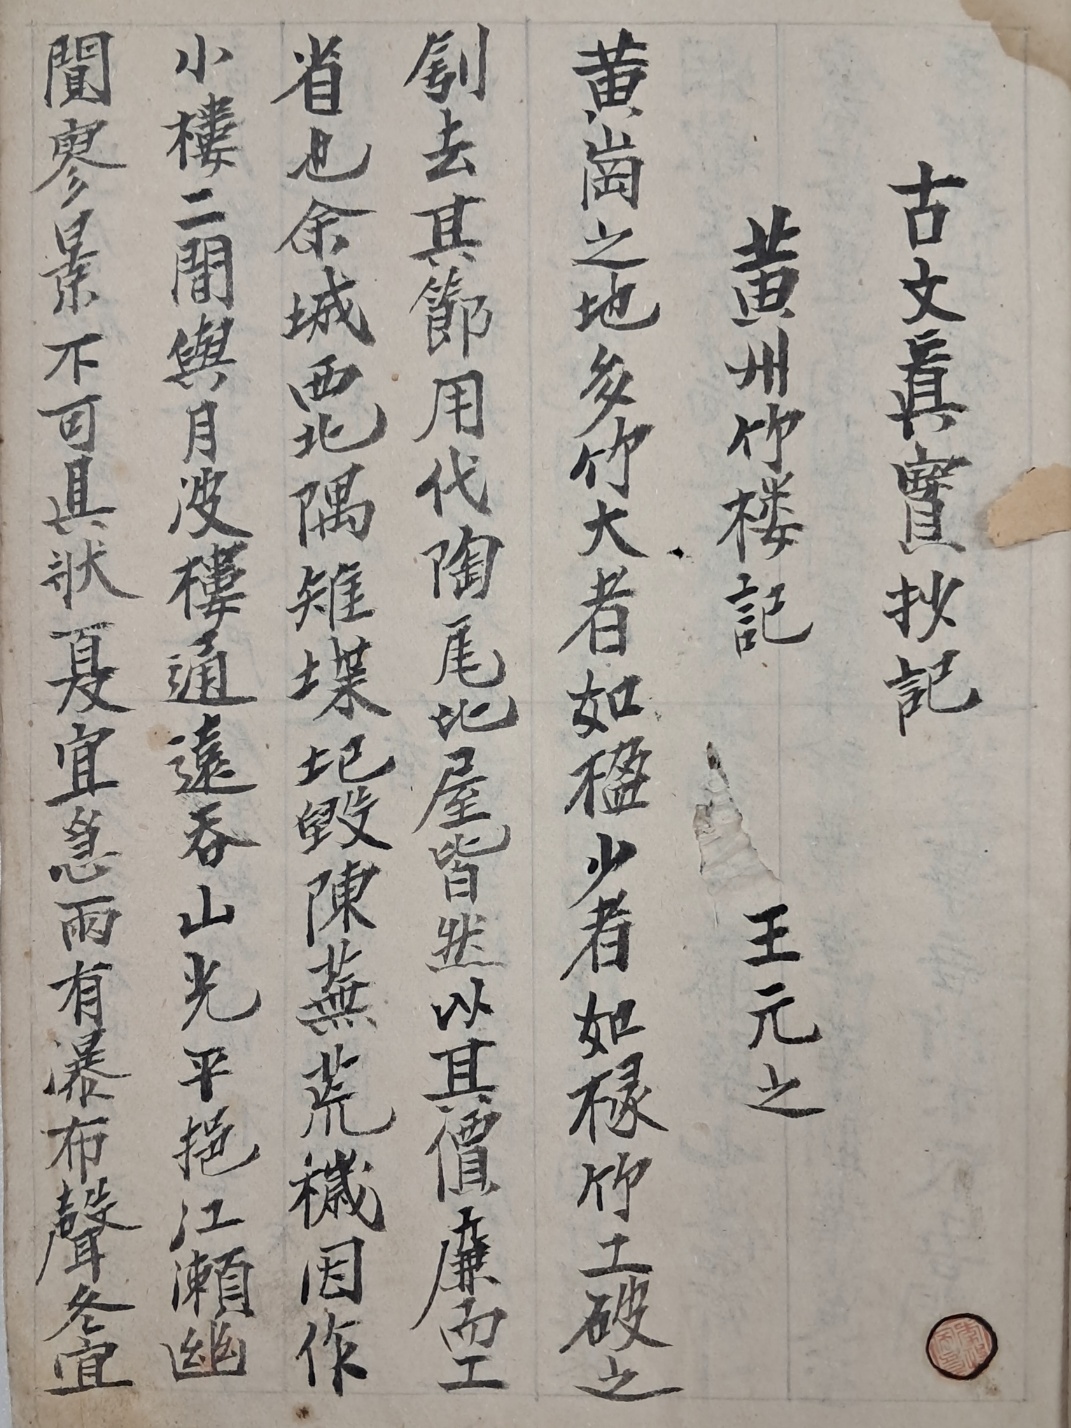 古文眞寳抄記
黄州竹楼記 王元之
黄崗之地多竹大者如楹少者如椽竹工破之
刳去其節用代陶尾比屋皆然以其價廉而工
省也余城西北隅雉堞圮毀陳蕪荒穢因作
小樓二間與月波樓通遠吞山光平挹江瀬幽
閴寥景不可具狀夏宜急雨有瀑布聲冬宜